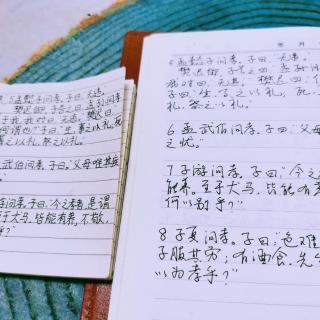 5 孟懿子问孝,子曰:无违。
樊迟御,子告之曰:孟孙问孝
我对曰无违,樊迟曰:
何谓也?子曰:"生,事之以礼,死
葬之以礼,祭之以礼。
武伯问孝,子曰:"父母唯其疾
游问孝,子曰:"今之孝者,是谓
至于犬马,皆能有养,不敬,
乎?"
年 月
孟懿子问孝,子曰:无违。
樊迟御,子告之曰,孟孙问
我对曰,无违,樊迟曰:
子曰:生,事之以礼,死
礼,祭之以礼。
6 孟武伯问孝,子曰:"父母
之忧。"
7 子游问孝,子曰:"今之
能养,至于犬马,皆能有养
何以别乎?"
8 子夏问孝,子曰:"色难
子服其劳;有酒食,先生
以为孝乎?"